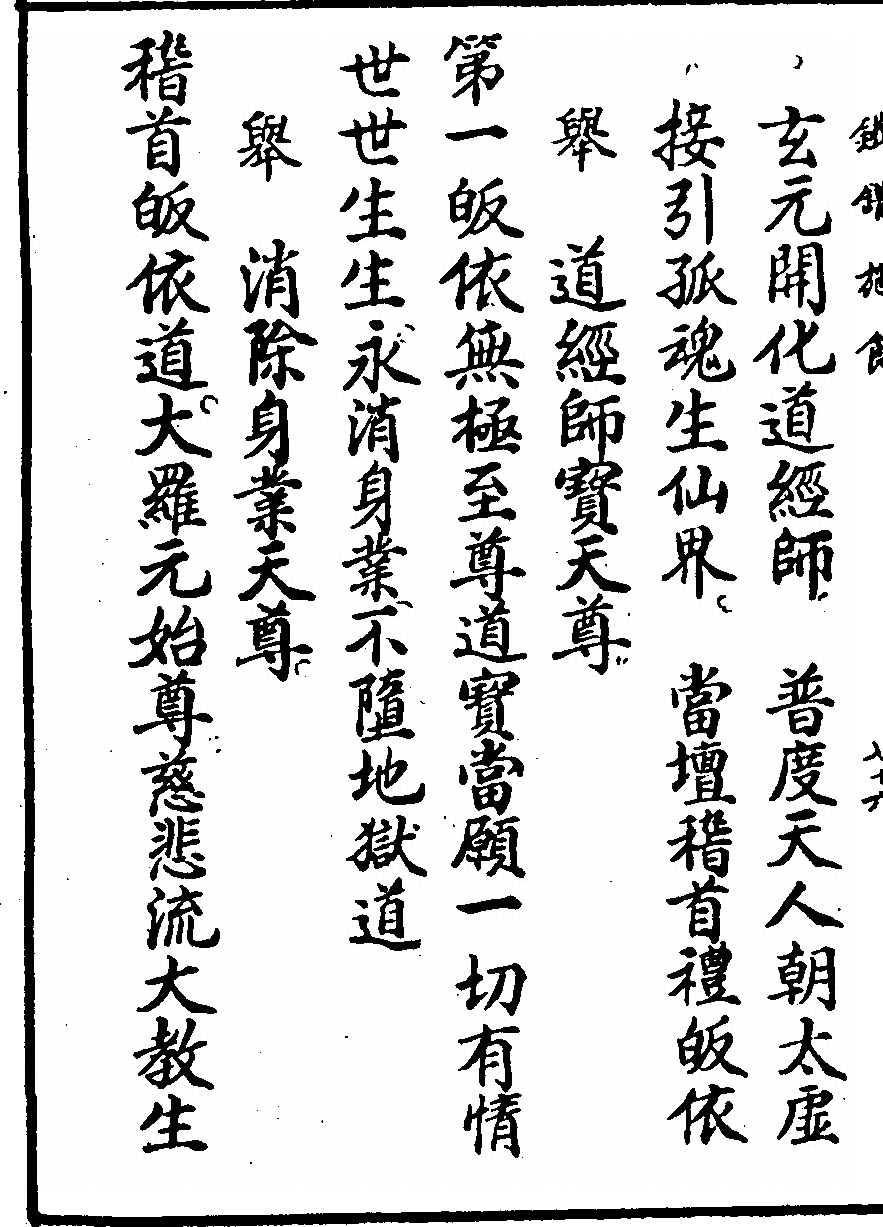 玄元開化道經師　普度天人朝太虛
接引孤魂生仙界　當壇稽首禮皈依
舉　道經師寶天尊
第一皈依無極至尊道寶當願一切有情
世世生生永消身業不墮地獄道
舉　消除身業天尊
稽首皈依道大羅元始尊慈悲流大教生